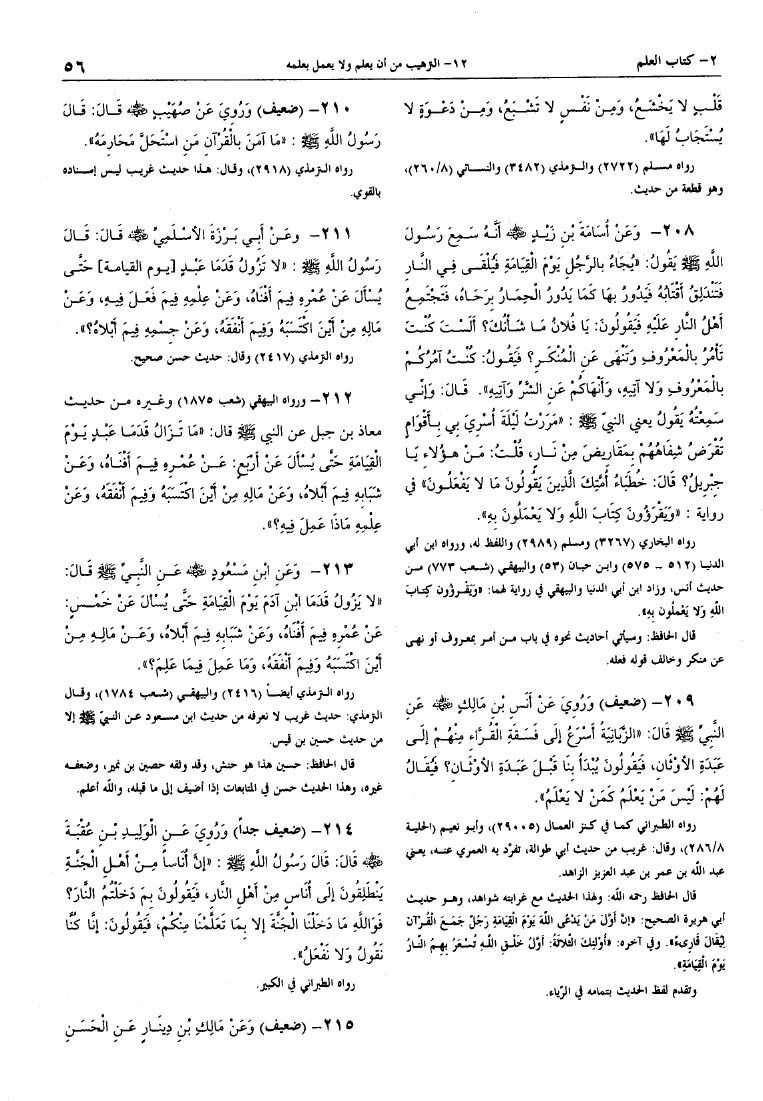 ٢- كتاب العلم
١٢- الترهيب من أن يعلم ولا يعمل بعلمه
٥٦
قَلْبٍ لا يَخْشَعُ، وَمِنْ نَفْسٍ لا تَشْبَعُ، وَمِنْ دَعْوَةٍ لا
يُسْتَجَابُ لَهَا».
رواه مسلم (٢٧٢٢) والترمذي (٣٤٨٢) والنسائي (٢٦٠/٨)،
وهو قطعة من حديث.
٢٠٨- وَعَنْ أُسَامَةَ بْنِ زَيْدٍ ﷺ أَنَّهُ سَمِعَ رَسُولَ
اللهِ ﷺ يَقُولُ: «يُجَاءُ بالرَّجُلِ يَوْمَ القِيَامَةِ فَيُلْقَى فِي النَّارِ
فَتَنْدَلِقُ أَقْتَابُهُ فَيَدُورُ بِهَا كَمَا يَدُورُ الْحِمَارُ بِرَحَاهُ، فَتَجْتَمِعُ
أَهْلُ النَّارِ عَلَيْهِ فَيَقُولُونَ: يَا فُلانُ مَا شَأْنُكَ؟ أَلَسْتَ كُنْتَ
تَأْمُرُ بِالْمَعْرُوفِ وَتَنْهَى عَنِ الْمُنْكَرِ؟ فَيَقُولُ: كُنْتُ آمُرُكُمْ
بِالْمَعْرُوفِ وَلا آتِيهِ، وَأَنْهَاكُمْ عَنِ الشَّرِّ وَآتِيهِ». قَالَ: وَإِنِّي
سَمِعْتُهُ يَقُولُ يعني النبيَّ ﷺ : «مَرَرْتُ لَيْلَةَ أُسْرِيَ بِي بِأَقْوَامٍ
تُقْرَضُ شِفَاهُهُمْ بِمَقَارِيضَ مِنْ نَارٍ، قُلْتُ: مَنْ هؤُلاءِ يَا
جِبْرِيلُ؟ قَالَ: خُطَبَاءُ أُمَّتِكَ الَّذِينَ يَقُولُونَ مَا لا يَفْعَلُونَ» في
رواية : «وَيَقْرَؤُونَ كِتَابَ اللهِ وَلا يَعْمَلُونَ بِهِ».
رواه البخاري (٣٢٦٧) ومسلم (٢٩٨٩) واللفظ له، ورواه ابن أبي
الدنيا (٥١٢ - ٥٧٥) وابن حبان (٥٣) والبيهقي (شعب ٧٧٣) من
حديث أنس، وزاد ابن أبي الدنيا والبيهقي في رواية لهما: «وَيَقْرَؤُونَ كِتَابَ
اللهِ وَلا يَعْمَلُونَ بِهِ».
قال الحافظ: وسيأتي أحاديث نحوه في باب من أمر بمعروف أو نهى
عن منكر وخالف قوله فعله.
٢٠٩- (ضعيف) وَرُوِيَ عَنْ أَنَسِ بْنِ مَالِكٍ ﷺ عَنِ
النبيِّ ﷺ قَالَ: «الزَّبَانِيَةُ أَسْرَعُ إِلَى فَسَقَةِ القُرَّاءِ مِنْهُمْ إِلَى
عَبَدَةِ الأَوْثَانِ، فَيَقُولُونَ يُبْدَأُ بِنَا قَبْلَ عَبَدَةِ الأَوْثَانِ؟ فَيُقَالُ
لَهُمْ: لَيْسَ مَنْ يَعْلَمُ كَمَنْ لا يَعْلَمُ».
رواه الطبراني كما في كنز العمال (٢٩٠٠٥)، وأبو نعيم (الحلية
٢٨٦/٨)، وقال: غريب من حديث أبي طوالة، تفرّد به العمري عنه، يعني
عبد الله بن عمر بن عبد العزيز الزاهد.
قال الحافظ رحمه الله: ولهذا الحديث مع غرابته شواهد، وهو حديث
أبي هريرة الصحيح: «إِنَّ أَوَّلَ مَنْ يَدْعُى اللهُ يَوْمَ الْقِيَامَةِ رَجُلٌ جَمَعَ الْقُرْآنَ
لِيُقَالَ قَارِىءٌ». وفي آخره: «أُولئِكَ الثَّلاثَةُ: أَوَّلُ خَلْقِ اللهِ تُسَعَّرُ بِهِمُ النَّارُ
يَوْمَ الْقِيَامَةِ».
وتقدم لفظ الحديث بتمامه في الرِّياء.
٢١٠- (ضعيف) وَرُوِيَ عَنْ صُهَيْبٍ ﷺ قَالَ: قَالَ
رَسُولُ اللهِ ﷺ : «مَا آمَنَ بِالْقُرْآنِ مَنِ اسْتَحَلَّ مَحَارِمَهُ».
رواه الترمذي (٢٩١٨)، وقال: هذا حديث غريب ليس إسناده
بالقوي.
٢١١- وعَنْ أَبِي بَرْزَةَ الأَسْلَمِيِّ ﷺ قَالَ: قَالَ
رَسُولُ اللهِ ﷺ : «لا تَزُولُ قَدَمَا عَبْدٍ [يوم القيامة] حَتَّى
يُسْأَلَ عَنْ عُمُرِهِ فِيمَ أَفْنَاهُ، وَعَنْ عِلْمِهِ فِيمَ فَعَلَ فِيهِ، وَعَنْ
مَالِهِ مِنْ أَيْنَ اكْتَسَبَهُ وَفِيمَ أَنْفَقَهُ، وَعَنْ جِسْمِهِ فِيمَ أَبْلاهُ؟».
رواه الترمذي (٢٤١٧) وقال: حديث حسن صحيح.
٢١٢- ورواه البيهقي (شعب ١٨٧٥) وغيره من حديث
معاذ بن جبل عن النبي ﷺ قال: «مَا تَزَالُ قَدَمَا عَبْدٍ يَوْمَ
القِيَامَةِ حَتَّى يُسْأَلَ عَنْ أَرْبَعٍ: عَنْ عُمُرِهِ فِيمَ أَفْنَاهُ، وَعَنْ
شَبَابِهِ فِيمَ أَبْلاهُ، وَعَنْ مَالِهِ مِنْ أَيْنَ اكْتَسَبَهُ وَفِيمَ أَنْفَقَهُ، وَعَنْ
عِلْمِهِ مَاذَا عَمِلَ فِيهِ؟».
٢١٣- وَعَنِ ابْنِ مَسْعُودٍ ﷺ عَنِ النَّبيِّ ﷺ قَالَ:
«لا يَزُولُ قَدَمَا ابْنِ آدَمَ يَوْمَ القِيَامَةِ حَتَّى يُسْأَلَ عَنْ خَمْسٍ:
عَنْ عُمُرِهِ فِيمَ أَفْنَاهُ، وَعَنْ شَبَابِهِ فِيمَ أَبْلاهُ، وَعَنْ مَالِهِ مِنْ
أَيْنَ اكْتَسَبَهُ وَفِيمَ أَنْفَقَهُ، وَمَا عَمِلَ فِيمَا عَلِمَ؟».
رواه الترمذي أيضاً (٢٤١٦) والبيهقي (شعب ١٧٨٤)، وقال
الترمذي: حديث غريب لا نعرفه من حديث ابن مسعود عن النبيّ ﷺ إلا
من حديث حسين بن قيس.
قال الحافظ: حسين هذا هو حنش، وقد وثقه حصين بن نمير، وضعفه
غيره، وهذا الحديث حسن في المتابعات إذا أضيف إلى ما قبله، والله أعلم.
٢١٤- (ضعيف جداً) وَرُوِيَ عَنِ الْوَلِيدِ بْنِ عُقْبَةَ
ﷺ قَالَ: قَالَ رَسُولُ اللهِ ﷺ : «إِنَّ أُنَاساً مِنْ أَهْلِ الْجَنَّةِ
يَنْطَلِقُونَ إِلَى أُنَاسٍ مِنْ أَهْلِ النَّارِ، فَيَقُولُونَ بِمَ دَخَلْتُمُ النَّارَ؟
فَوَاللهِ مَا دَخَلْنَا الْجَنَّةَ إِلا بِمَا تَعَلَّمْنَا مِنْكُمْ، فَيَقُولُونَ: إِنَّا كُنَّا
نَقُولُ وَلا نَفْعَلُ».
رواه الطبراني في الكبير.
٢١٥- (ضعيف) وَعَنْ مَالِكِ بْنِ دِينَارٍ عَنِ الْحَسَنِ